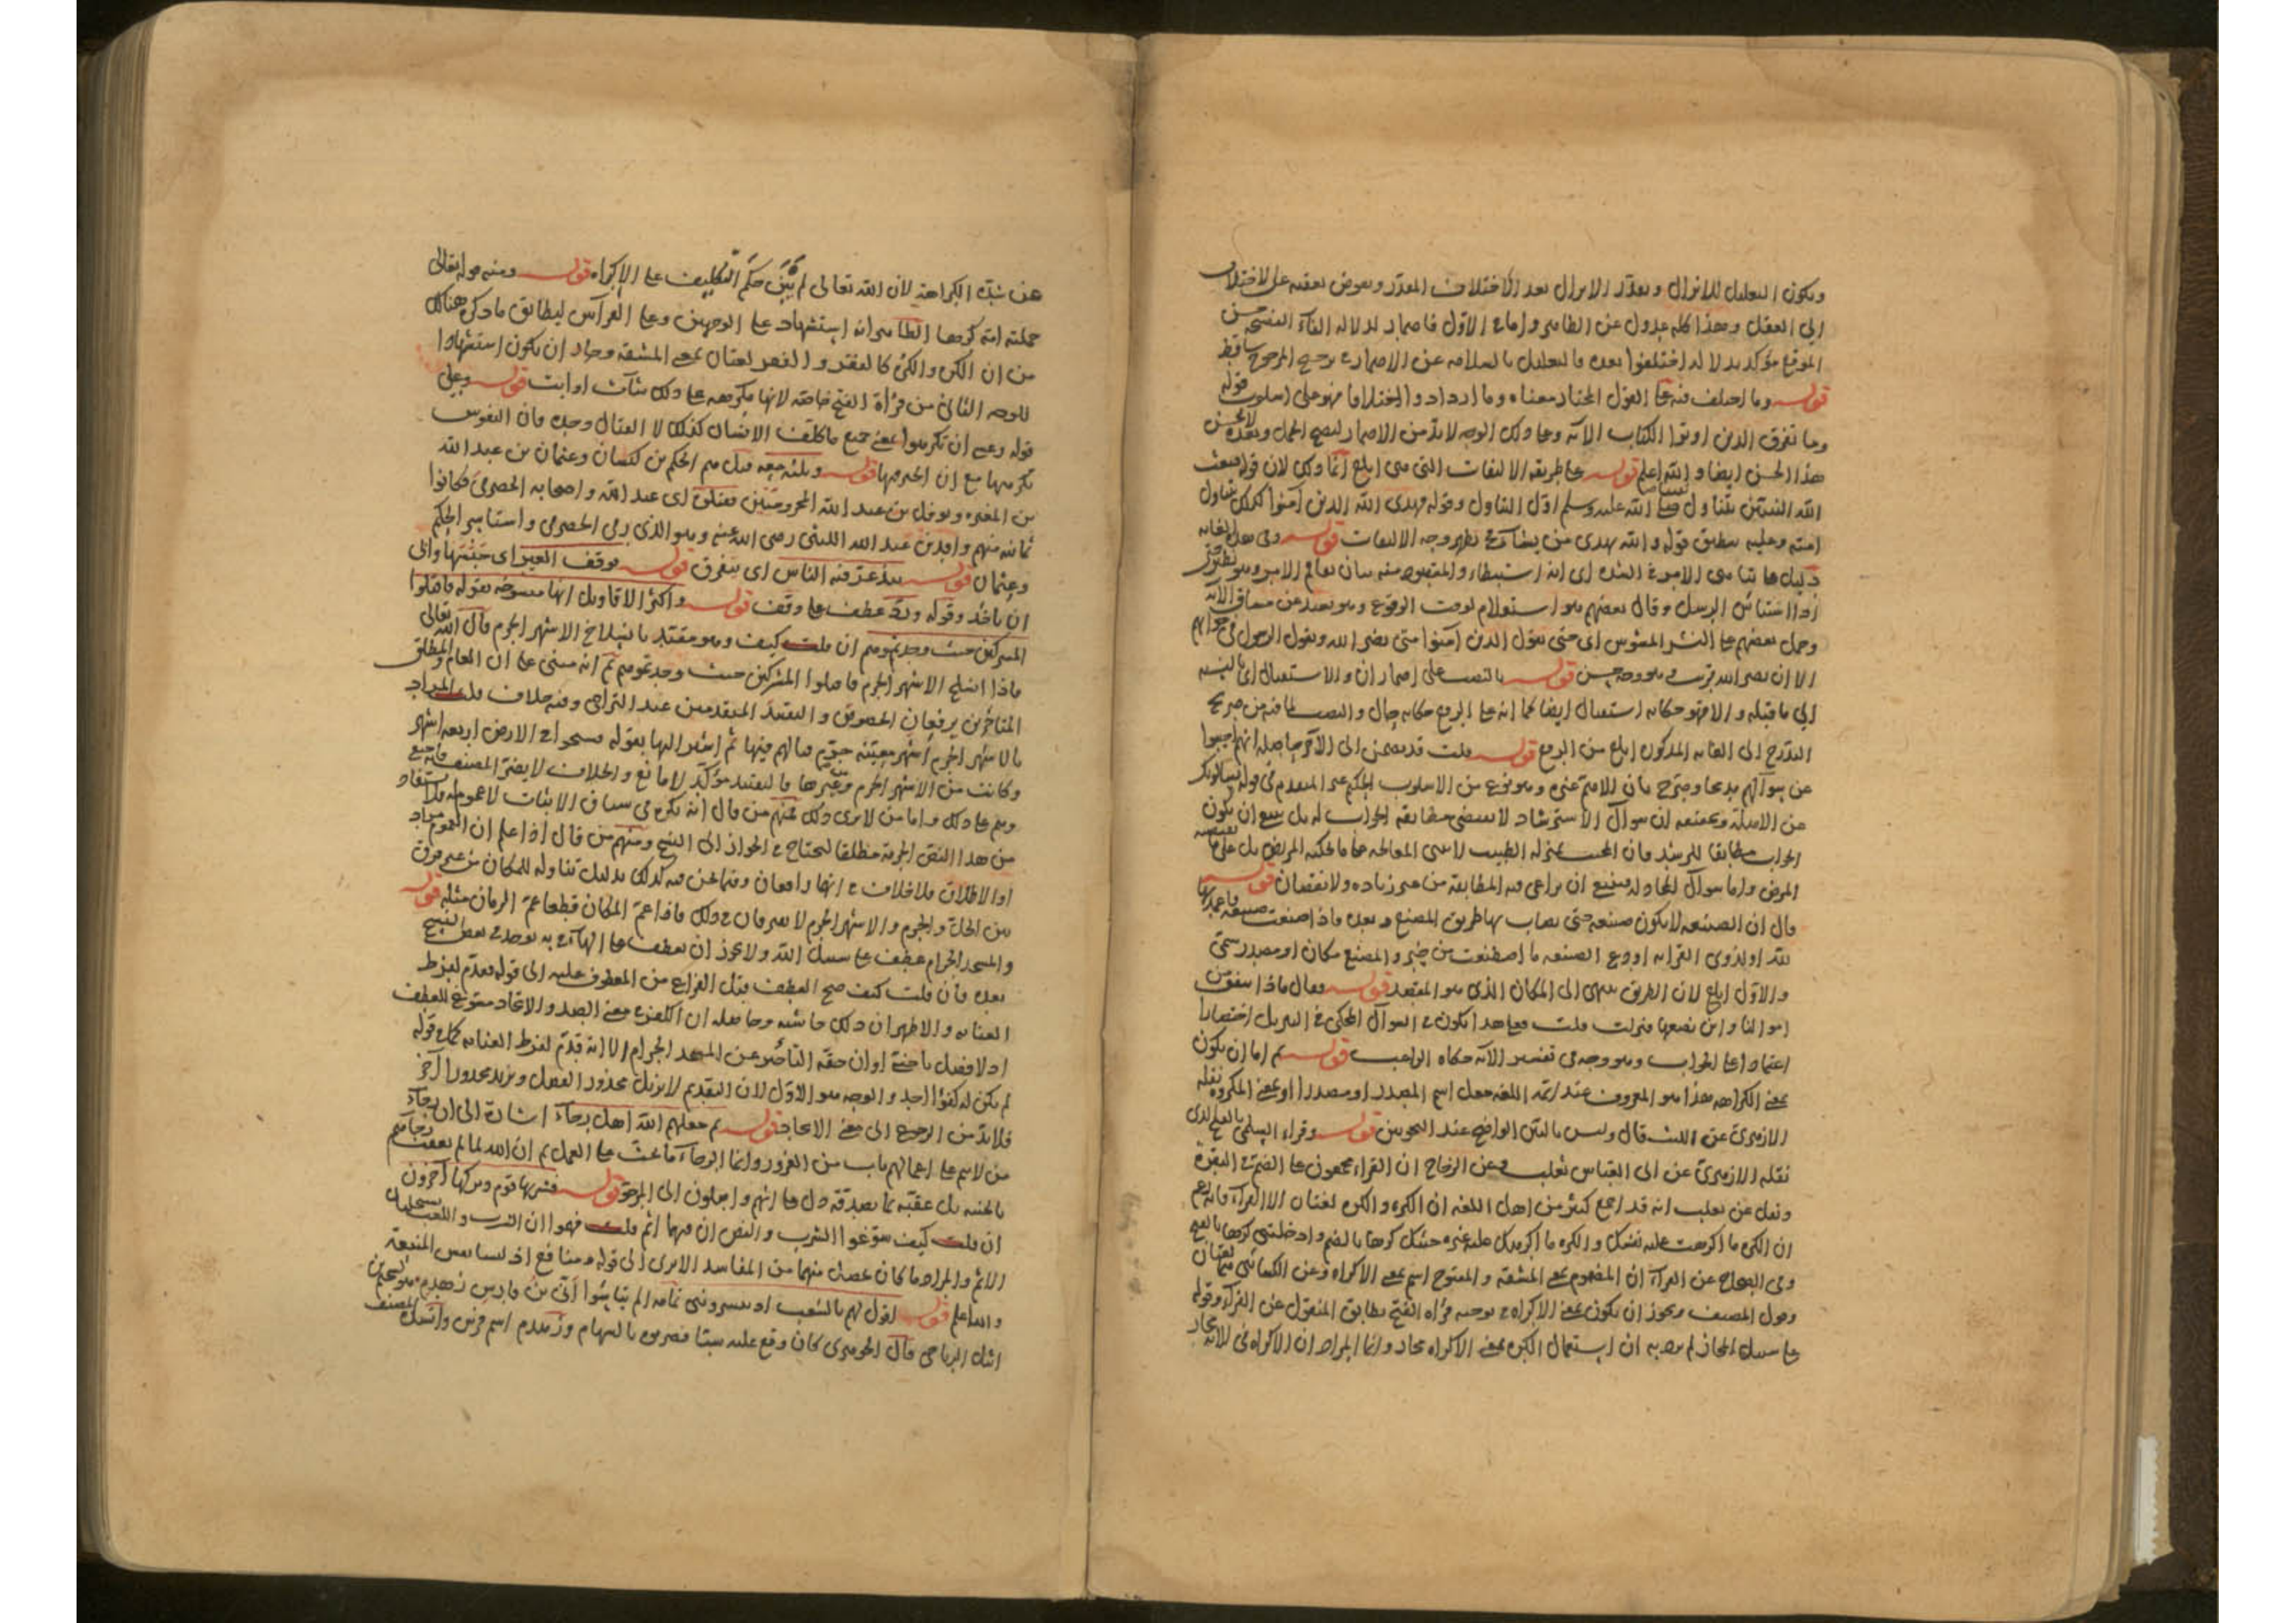 ويكون التعليل للانزال وتعدد الانزال بعد الاختلاف المقدر وتعوض تعقبه على الاختلاف
الى العقل وهذا كله عدول عن الظاهر واما ع الاول فاضمار لدلالة الفاء الفصيحة حسن
الموقع مؤكد بدلالة اختلفوا بعده فالتعليل بالسلامة عن الاضمار ترجيح المرجوح ساقط
قوله وما اختلف فيه على القول المختار معناه وما ازداد والاختلافا فهو على اسلوب قوله
وما تفرق الذين اوتوا الكتاب الآية وعلى ذلك الوجه لا بد من الاضمار ليصح الحمل وبعده لا يحسن
هذا الحسن ايضا والله اعلم قوله على طريقة الالتفات التي هي ابلغ انما ذلك لان قوله فبعث
الله النبيين يتناول صلى الله عليه وسلم اول التناول وقوله فهدى الله الذين آمنوا كذلك يتناول
امته وعليه ينطبق قوله والله يهدي من يشاء فظهر وجه الالتفات قوله وفي هذه الغاية
دليل على تناهي الامر في الشدة اى انه استبطاء والمقصود منه بيان تعاظم الامر
الرسل وقال بعضهم هو استعلام لوقت الوقوع وهو بعيد عن مساق الآية
وحمل بعضهم على النشر المشوش اى حتى يقول الذين آمنوا متى نصر الله ويقول الرسول في جوابهم
الا ان نصر الله قريب وهو وجه حسن قوله بالنصب على اضمار ان والاستقبال اى بالنسبة
الى ما قبله والا فهو حكاية استقبال ايضا كما انه على الرفع حكاية حال والنصب لما فيه من صريح
التدرج الى الغاية المذكورة ابلغ من الرفع قوله قلت قد تضمن الى الآخر حاصله انهم اجيبوا
عن سؤالهم مدمجا وصرح بان الاهم غيره وهو نوع من الاسلوب الحكيم غير المتقدم في قوله يسألونك
عن الاهلة وتحقيقه ان سؤال الاسترشاد لا يقتضي مطابقة الجواب له بل ينبغي ان يكون
الجواب مطابقا للرشد فان المجيب بمنزلة الطبيب لا يبني المعالجة على ما يحكيه المريض بل على ما يقتضيه
المرض واما سؤال المجادلة فينبغي ان يراعى فيه المطابقة من غير زيادة ولا نقصان قوله
قال ان الصنيعة لا تكون صنيعة حتى يصاب بها طريق المصنع وبعده فاذا صنعت صنيعة فاعمد بها
لله او لذوي القرابة او دع الصنيعة ما اصطنعت من خير والمصنع مكان او مصدر سمي
والاول ابلغ لان الطريق ينتهي الى المكان الذي هو المقصد قوله فقال ماذا ننفق من
اموالنا واين نضعها فنزلت قلت فعلى هذا يكون السؤال المحكي في التنزيل اختصارا
اعتمادا على الجواب وهو وجه في تفسير الآية حكاه الراغب قوله ثم اما ان يكون
بمعنى الكراهة هذا هو المعروف عند ائمة اللغة جعل اسم المصدر او مصدرا او بمعنى المكروه نقله
الازهري عن الليث قال وليس بالبين الواضح عند النحويين قوله وقراء السلمي بالفتح الذي
نقله الازهري عن ابي العباس ثعلب وعن الزجاج ان القراء مجمعون على الضم في البقرة
ونقل عن ثعلب انه قد اجمع كثير من اهل اللغة ان الكره والكره لغتان الا الفراء فانه زعم
ان الكره ما اكرهت عليه نفسك والكره ما اكرهك عليه غيرك جئتك كرها بالضم وادخلتني كرها بالفتح
وفي الصحاح عن الفراء ان المضموم بمعنى المشقة والمفتوح اسم بمعنى الاكراه وعن الكسائي هما لغتان
وقول المصنف ويجوز ان يكون بمعنى الاكراه توجيه قراءة الفتح يطابق المنقول عن الفراء وقوله
على سبيل المجاز لم يرد به ان استعمال الكره بمعنى الاكراه مجاز وانما المراد ان الاكراه في الآية مجاز
عن شدة الكراهة لان الله تعالى لم يبين حكم التكليف على الاكراه قوله ومنه قوله تعالى
حملته امه كرها الظاهر انه استشهاد على الوجهين وعلى القرآتين ليطابق ما ذكره هناك
من ان الكره والكره كالفقر والفقر لغتان بمعنى المشقة وجاز ان يكون استشهادا
للوجه الثاني من قراءة الفتح خاصة لانها مكرهة على ذلك شآءت او ابت قوله وعلى
قوله وعسى ان تكرهوا بمعنى جميع ما كلف الانسان كذلك لا القتال وحده فان النفوس
تكرهها مع ان الخير فيها قوله وثلثة معه قيل هم الحكم بن كيسان وعثمان بن عبد الله
بن المغيرة ونوفل بن عبد الله المخزوميين فقتلوه اى عبد الله واصحابه الحضرمي فكانوا
ثمانية منهم واقد بن عبد الله الليثي رضي الله عنه وهو الذي رمى الحضرمي واستاسر الحكم
وعثمان قوله يبذعر فيه الناس اى يتفرق قوله فوقف العير اى حبسها وابى
ان ياخذ وقوله ورد عطف على وقف قوله واكثر الاقاويل انها منسوخة بقوله فاقتلوا
المشركين حيث وجدتموهم ان قلت كيف وهو مقيد بانسلاخ الاشهر الحرم قال الله تعالى
فاذا انسلخ الاشهر الحرم فاقتلوا المشركين حيث وجدتموهم ثم انه مبني على ان العام والمطلق
المتاخرين يرفعان الخصوص والتقييد المتقدمين عند التراخي وفيه خلاف قلت المراد
بالاشهر الحرم اشهر معينة حرم قتالهم فيها ثم اشير اليها بقوله فسيحوا في الارض اربعة اشهر
وكانت من الاشهر الحرم وغيرها فالتقييد مؤكد لا مانع والخلاف لا يضر المصنف
على ذلك واما من لا يرى ذلك فمنهم من قال انه نكرة في سياق الاثبات لا عموم
من هذا النص الحرمة مطلقا ليحتاج في الجواز الى النسخ ومنهم من قال اذا علم ان العموم مراد
او الاطلاق فلا خلاف في انها رافعان وفيما نحن فيه كذلك بدليل تناوله للمكان من غير فرق
بين الحل والحرم والاشهر الحرم لا تفرقان في ذلك فاذا عم المكان قطعا عم الزمان مثله قوله
والمسجد الحرام عطف على سبيل الله ولا يجوز ان يعطف على الهاء في به يوجد في بعض النسخ
بعده فان قلت كيف صح العطف قبل الفراغ من المعطوف عليه الى قوله فقدم لفرط
العناية والاظهر ان ذلك حاشية وحاصله ان الكفر في معنى الصد والاتحاد مسوغ للعطف
اذ لا فصل باجنبي او ان حقه التأخير عن المسجد الحرام الا انه قدم لفرط العناية كما في قوله
لم يكن له كفوا احد والوجه هو الاول لان التقديم لا يزيل محذور الفصل ويزيد محذورا آخر
فلا بد من الرجوع الى معنى الاتحاد قوله ثم جعلهم الله اهل رجاء اشارة الى ان رجاء
من لا سعي على اعمالهم باب من الغرور وانما الرجاء ما بعث على العمل ثم ان الله لما لم يعقب
بالخيبة بل عقبه بما يصدقه دل على انهم واصلون الى المرجو قوله فشربها قوم وتركها آخرون
ان قلت كيف سوغوا الشرب والنص ان فيهما اثم قلت فهموا ان الشرب واللعب
الاثم والمراد ما كان يحصل منهما من المفاسد الا يرى الى قوله ومنافع
والله اعلم قوله اقول لهم بالشعب اذ ييسرونني تمامه الم تيأسوا اني بن فارس زهدم هو سحيم بن
اثيل الرياحي قال الجوهري كان وقع عليه سبا فضربوه بالسهام وزهدم اسم فرس وانشده المصنف